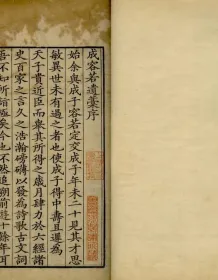 成容若遺藁序
始余與成子容若定交成子年未二十見其才思
敏異世未有過之者也使成子得中壽且遲為
天子貴近臣而舉其所得之歲月肆力於六經諸
史百家之言久之浩瀚磅礴以發為詩歌古文詞
吾不知所詣極矣今也不然追溯前遊十餘年耳